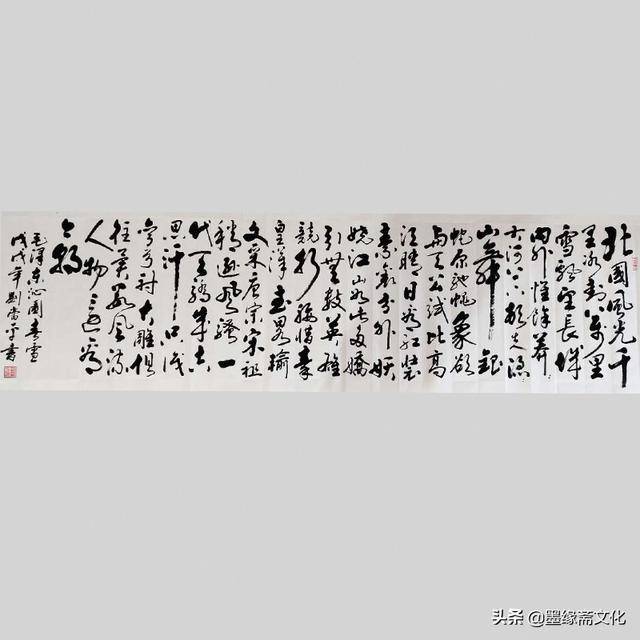 北國風光千
里冰封萬里
雪飘望長城
内外惟餘莽莽
大河上下頓失滔滔
山舞銀
蛇原馳蜡象欲
与天公試比高
须晴日看红裝
素裹分外妖
娆江山如此多嬌
引無數英雄
競折腰惜秦
皇漢武略输
文采唐宗宋祖
稍逊風骚一
代天驕成吉
思汗只识
彎弓射大雕俱
往矣數風流
人物还看
今朝
毛澤东沁園春雪
戊戌年刘雷平書
头条 @墨缘斋文化